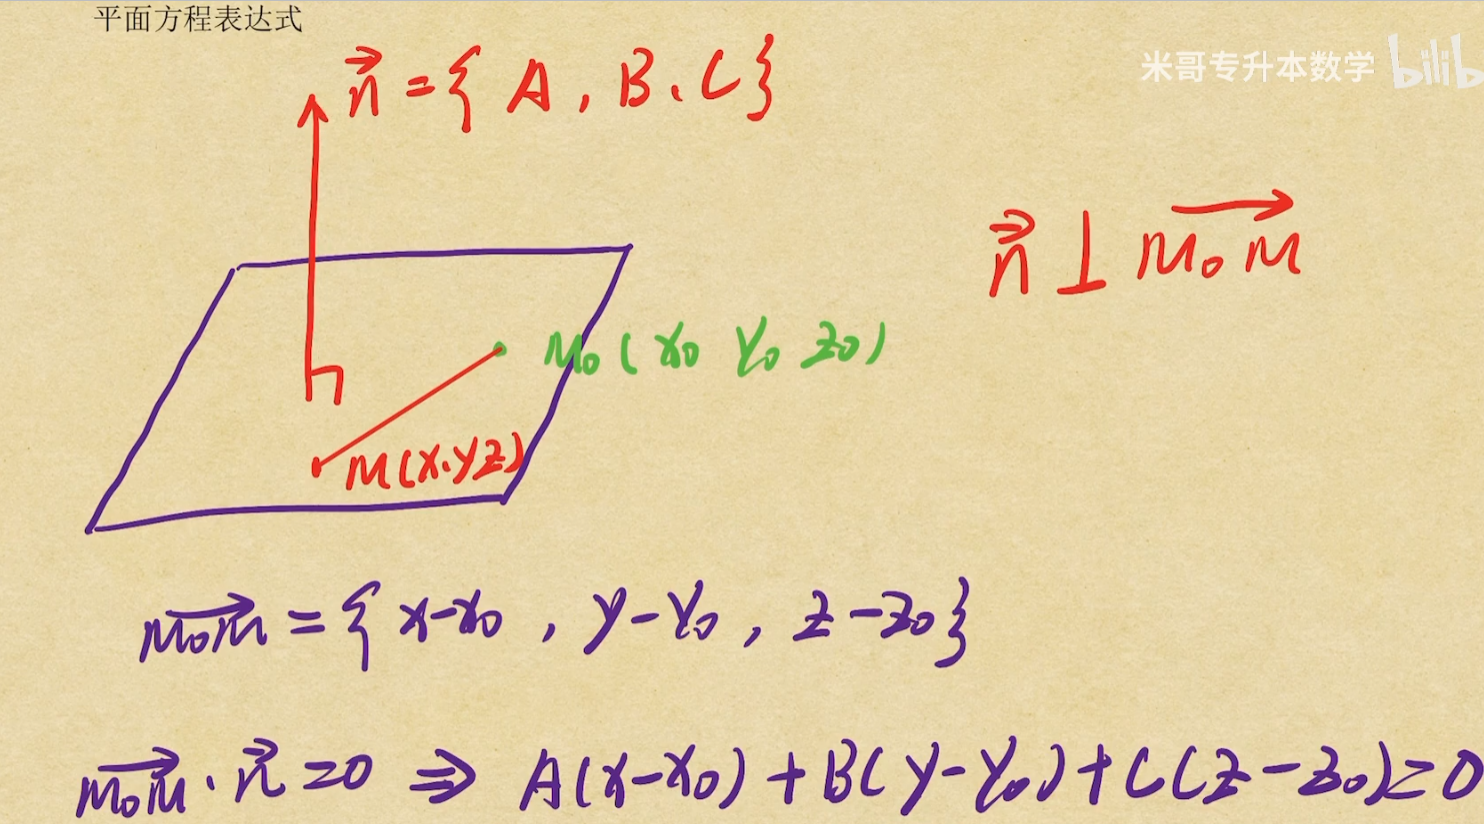 平面方程表达式
n⃗ = { A , B、C }
米哥专升本数学 bilib
n⃗ ⊥ M₀M⃗
M₀ ( x₀ y₀ z₀ )
M(x、y z)
M₀M⃗ = { x-x₀ , y-y₀ , z-z₀ }
M₀M⃗ · n⃗ = 0 ⇒ A(x-x₀) + B(y-y₀) + C(z-z₀) = 0